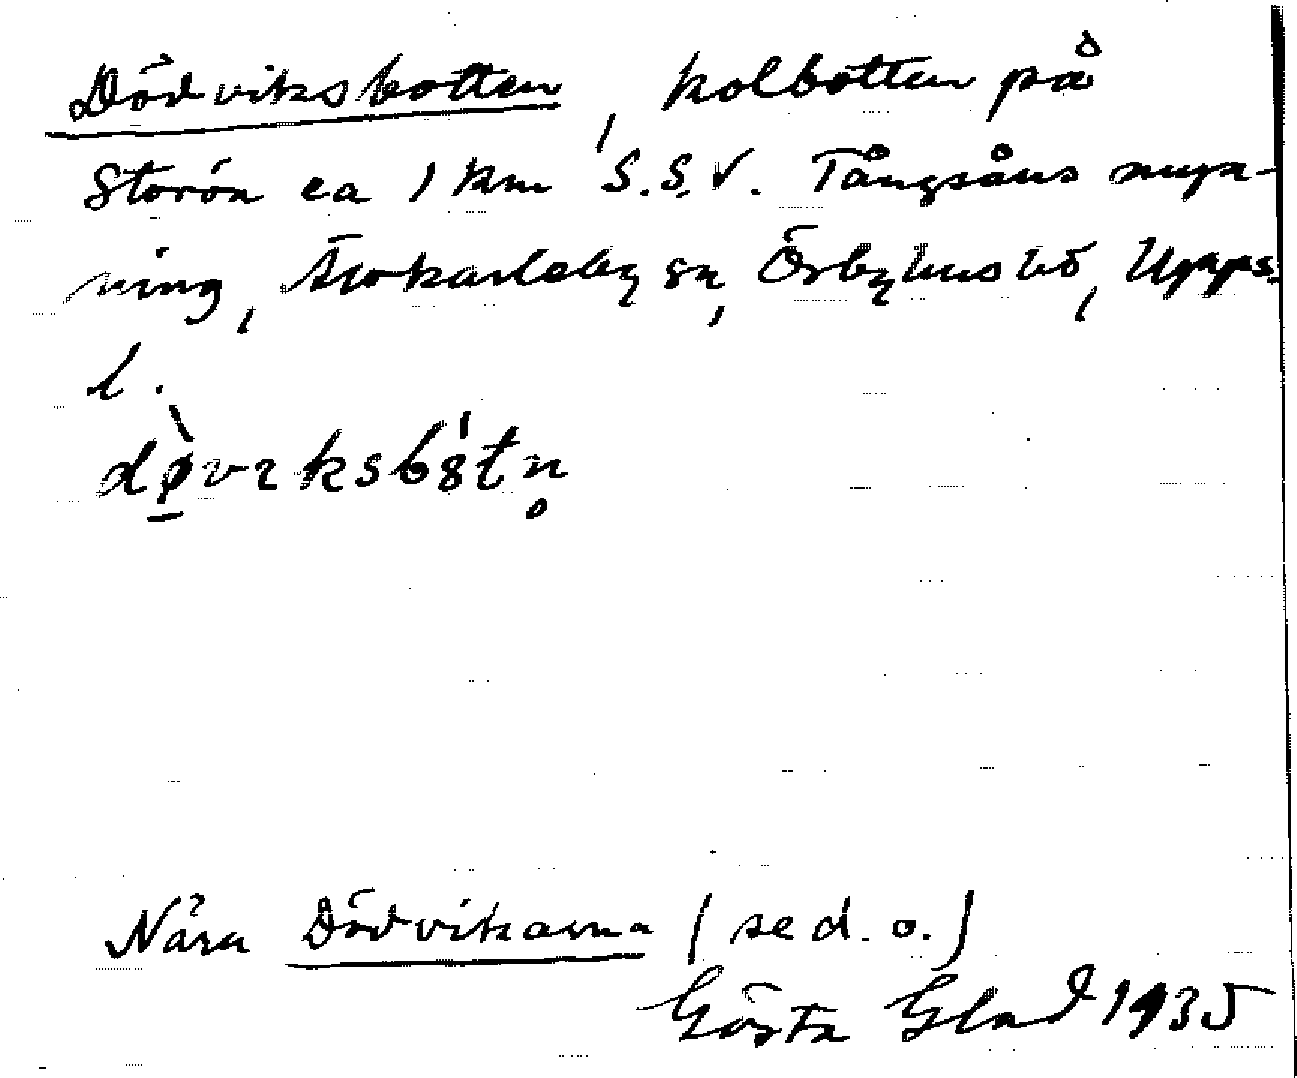 Dödviksbotten, kolbotten på
Storön ca 1 km S.S.V. Tångsåns myn-
ning, Älvkarleby sn, Örbyhus hd, Upps.
l.
Nära Dödvikarna (se d. o.)
Gösta Glad 1935